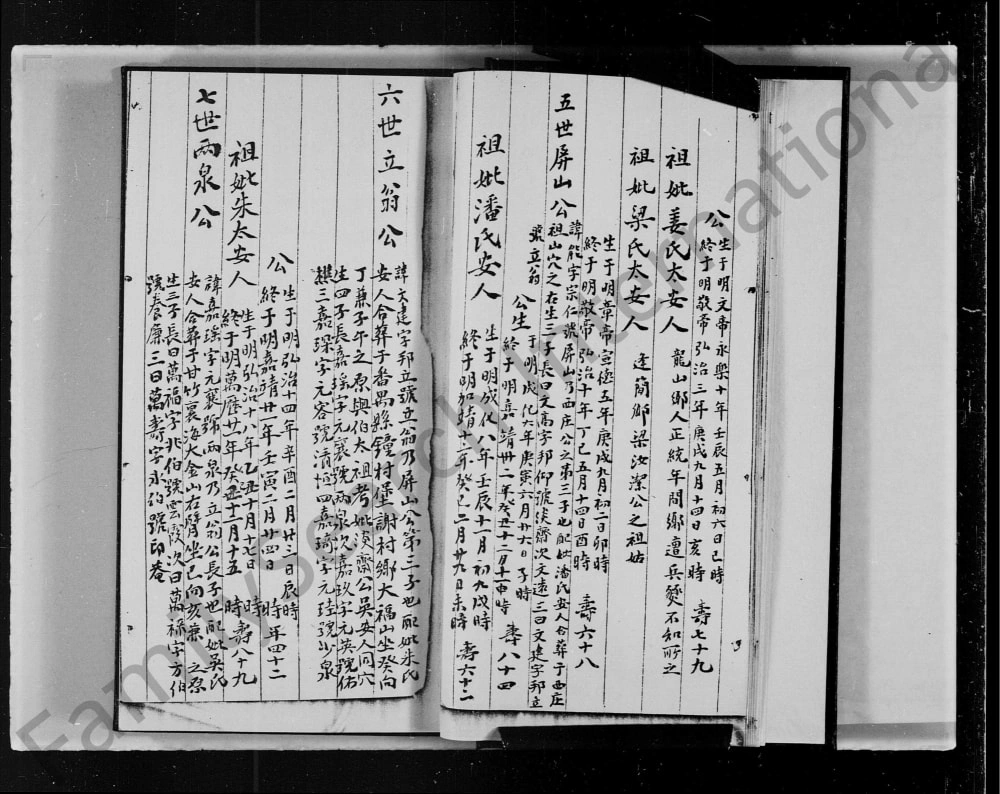 公
生于明文帝永樂十年壬辰五月初六日巳時
終于明敬帝弘治三年庚戌九月十四日亥時 壽七十九
祖妣姜氏太安人 龍山鄉人正統年間鄉遭兵燹不知所之
祖妣梁氏太安人 逢簡鄉梁汝潔公之祖姑
生于明章帝宣德五年庚戌九月初一日卯時
終于明敬帝弘治十年丁巳五月十四日酉時 壽六十八
五世屏山公
諱能字宗仁號屏山乃西庄公之第三子也配妣潘氏安人合葬于西庄
祖山穴之在生三子長曰文高字邦仰號淡齋次文遠三曰文建字邦立
號立翁
公生于明成化六年庚寅六月廿六日子時
終明嘉靖卅二年癸丑十二月十一申時 壽八十四
祖妣潘氏安人
生于明成化八年壬辰十一月初九戌時
終于明加靖十二年癸巳二月廿九日未時 壽六十二
六世立翁公
諱大建字邦立號立翁乃屏山公第三子也配妣朱氏
安人合葬于番禺縣鐘村堡謝村鄉大福山坐癸向
丁兼子午之原與伯太祖考妣淡齋公吳安人同穴
生四子長嘉瑤字元襄號兩泉次嘉玖字元英號佑
三嘉琛字元容號清恒四嘉琦字元珪號少泉
公
生于明弘治十四年辛酉二月廿三日辰時
終于明嘉靖廿一年壬寅二月廿四日 時年四十二
祖妣朱太安人
生于明弘治十八年乙丑十月十七日 時
終于明萬曆廿一年癸丑十一月十五 時壽八十九
七世兩泉公
諱嘉瑤字元襄號兩泉乃立翁公長子也配妣吳氏
安人合葬于甘竹裏海大金山右臂坐巳向亥兼 之原
生三子長曰萬福字兆伯號雲段次曰萬祿字方伯
號養廉三曰萬壽字永伯號印菴
FamilySearch International